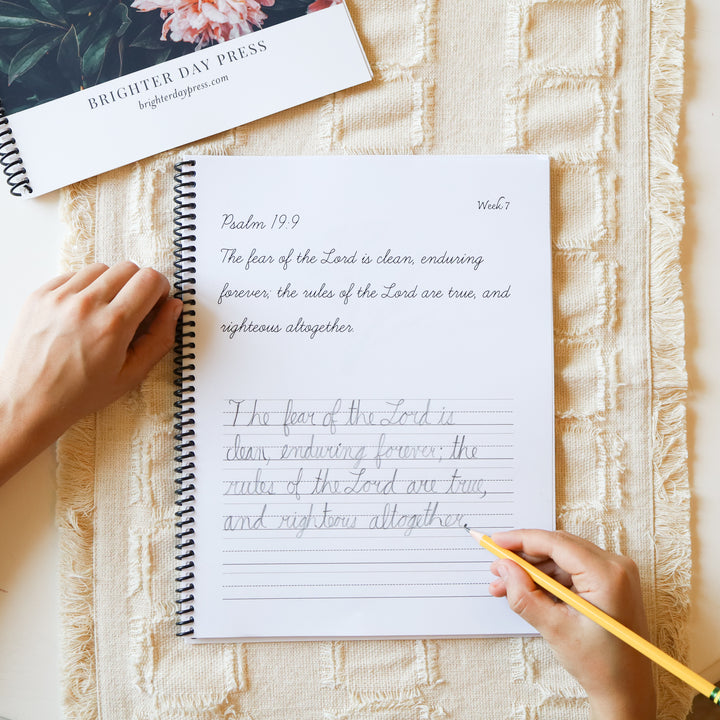 BRIGHTER DAY PRESS
brighterdaypress.com
Week 7
Psalm 19:9
The fear of the Lord is clean, enduring
forever; the rules of the Lord are true, and
righteous altogether.
The fear of the Lord is
clean, enduring forever; the
rules of the Lord are true,
and rightous altogether.